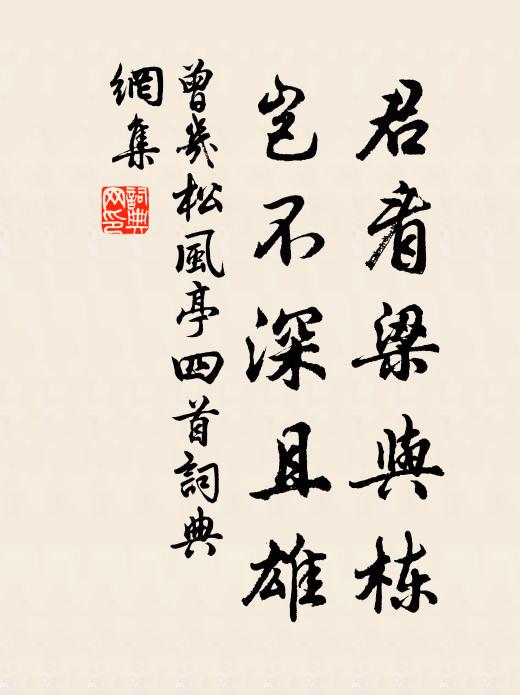 君看梁與栋
豈不深且雄
曾幾松風亭四首詞典
網集
詞典
网印